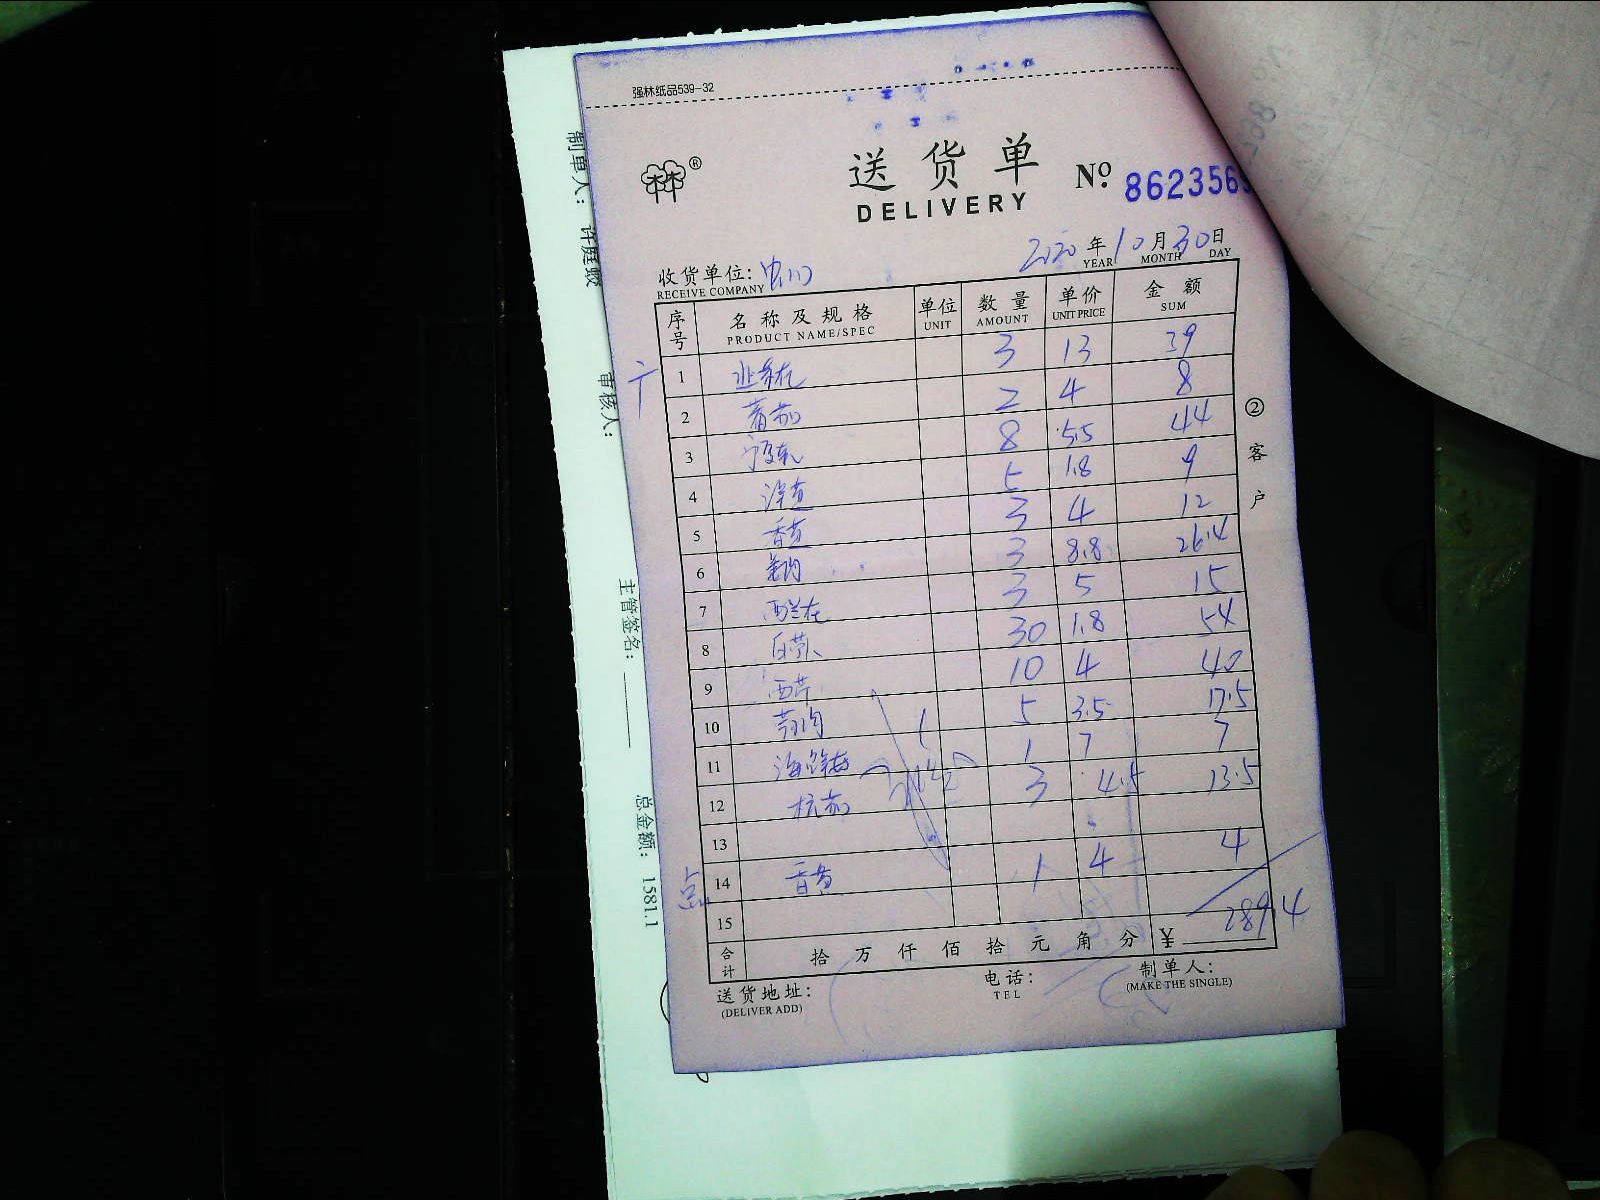 强林纸品539-32
送货单
DELIVERY
No. 862356
2020年10月30日
YEAR MONTH DAY
收货单位:
RECEIVE COMPANY
序号 名称及规格 单位 数量 单价 金额
PRODUCT NAME/SPEC UNIT AMOUNT UNIT PRICE SUM
1 3 13 39
2 蕃茄 2 4 8
3 8 5.5 44
4 5 1.8 9
5 3 4 12
6 3 8.8 26.4
7 西兰花 3 5 15
8 30 1.8 54
9 西芹 10 4 40
10 5 3.5 17.5
11 海鲜菇 1 7 7
12 杭茄 3 4.5 13.5
13
14 1 4 4
15
合计 拾万仟佰拾元角分 ¥ 289.4
送货地址:
(DELIVER ADD)
电话:
TEL
制单人:
(MAKE THE SINGLE)
②客户
制单人: 许庭
审核人:
主管签名:
总金额: 1581.1